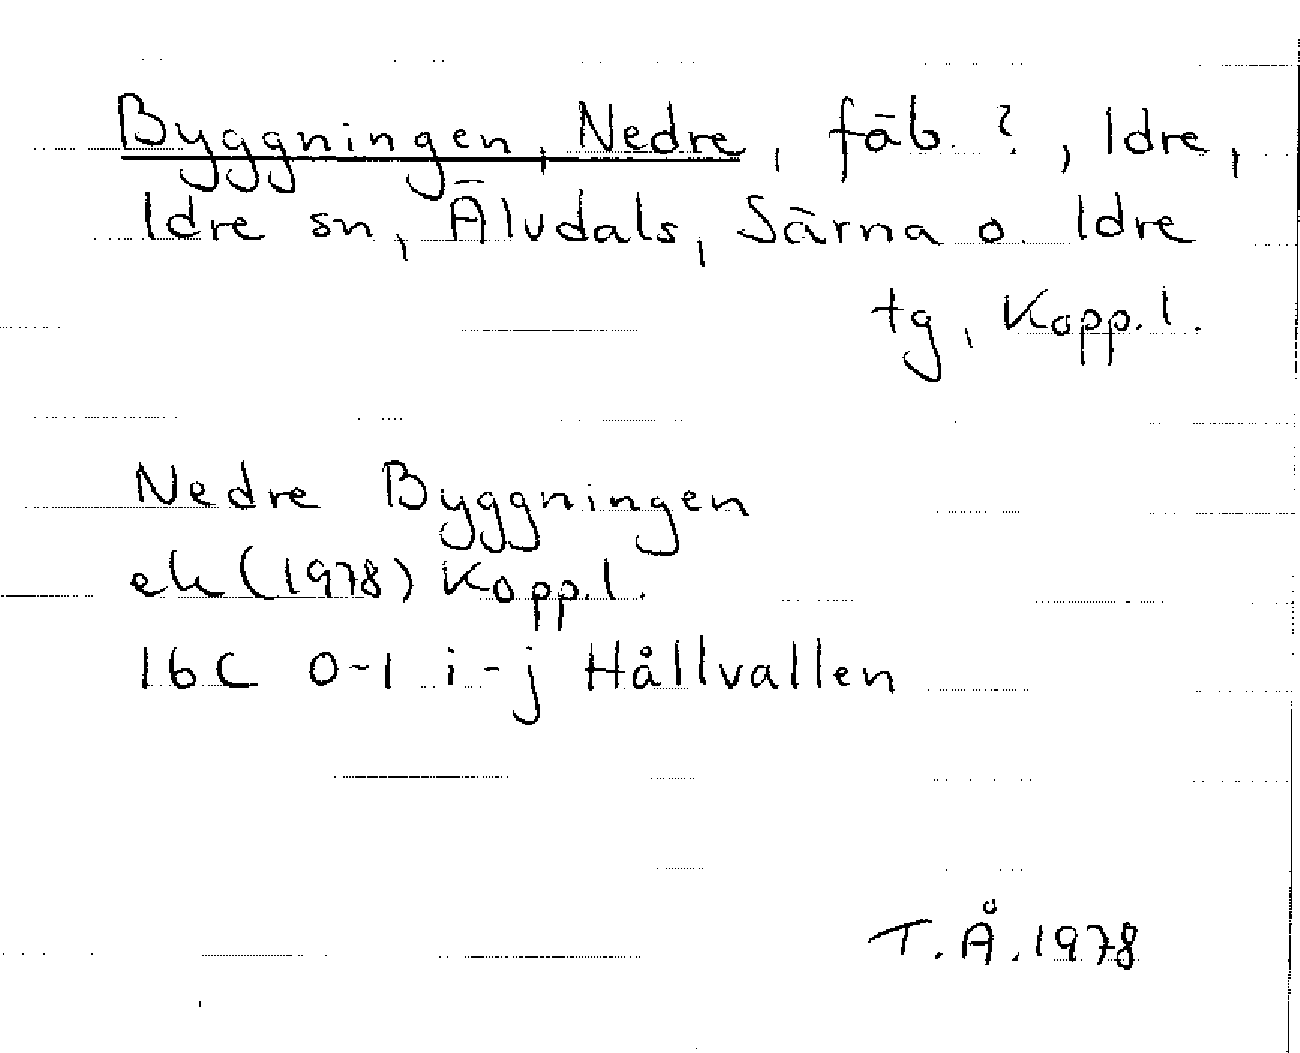 Byggningen, Nedre, fäb. ?, Idre,
Idre sn, Älvdals, Särna o. Idre
tg, Kopp. l.
Nedre Byggningen
ek (1978) Kopp. l.
16C 0-1 i-j Hållvallen
T. Å. 1978